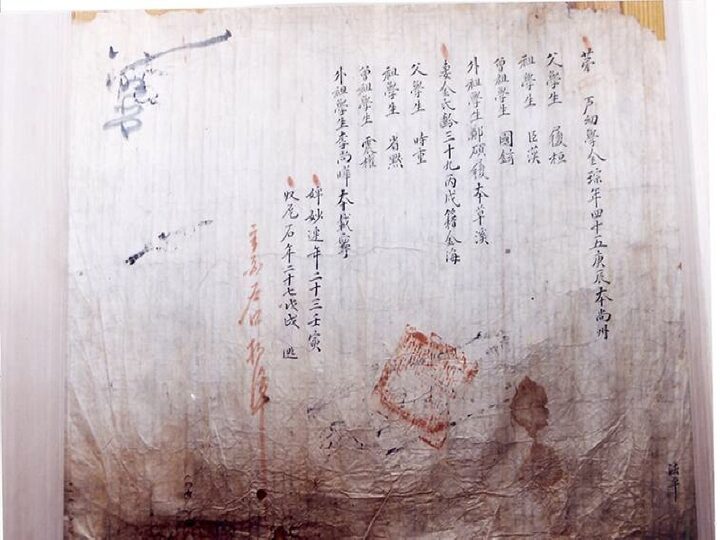 第 戶幼學金琮年四十五庚辰本尙州
父學生 復桓
祖學生 臣漢
曾祖學生 國錡
外祖學生鄭碩復本草溪
妻金氏齡三十九丙戌籍金海
父學生 時重
祖學生 省默
曾祖學生 震權
外祖學生李尙曄本載寧
婢妙連年二十三壬寅
奴尼石年二十七戊戌 逃